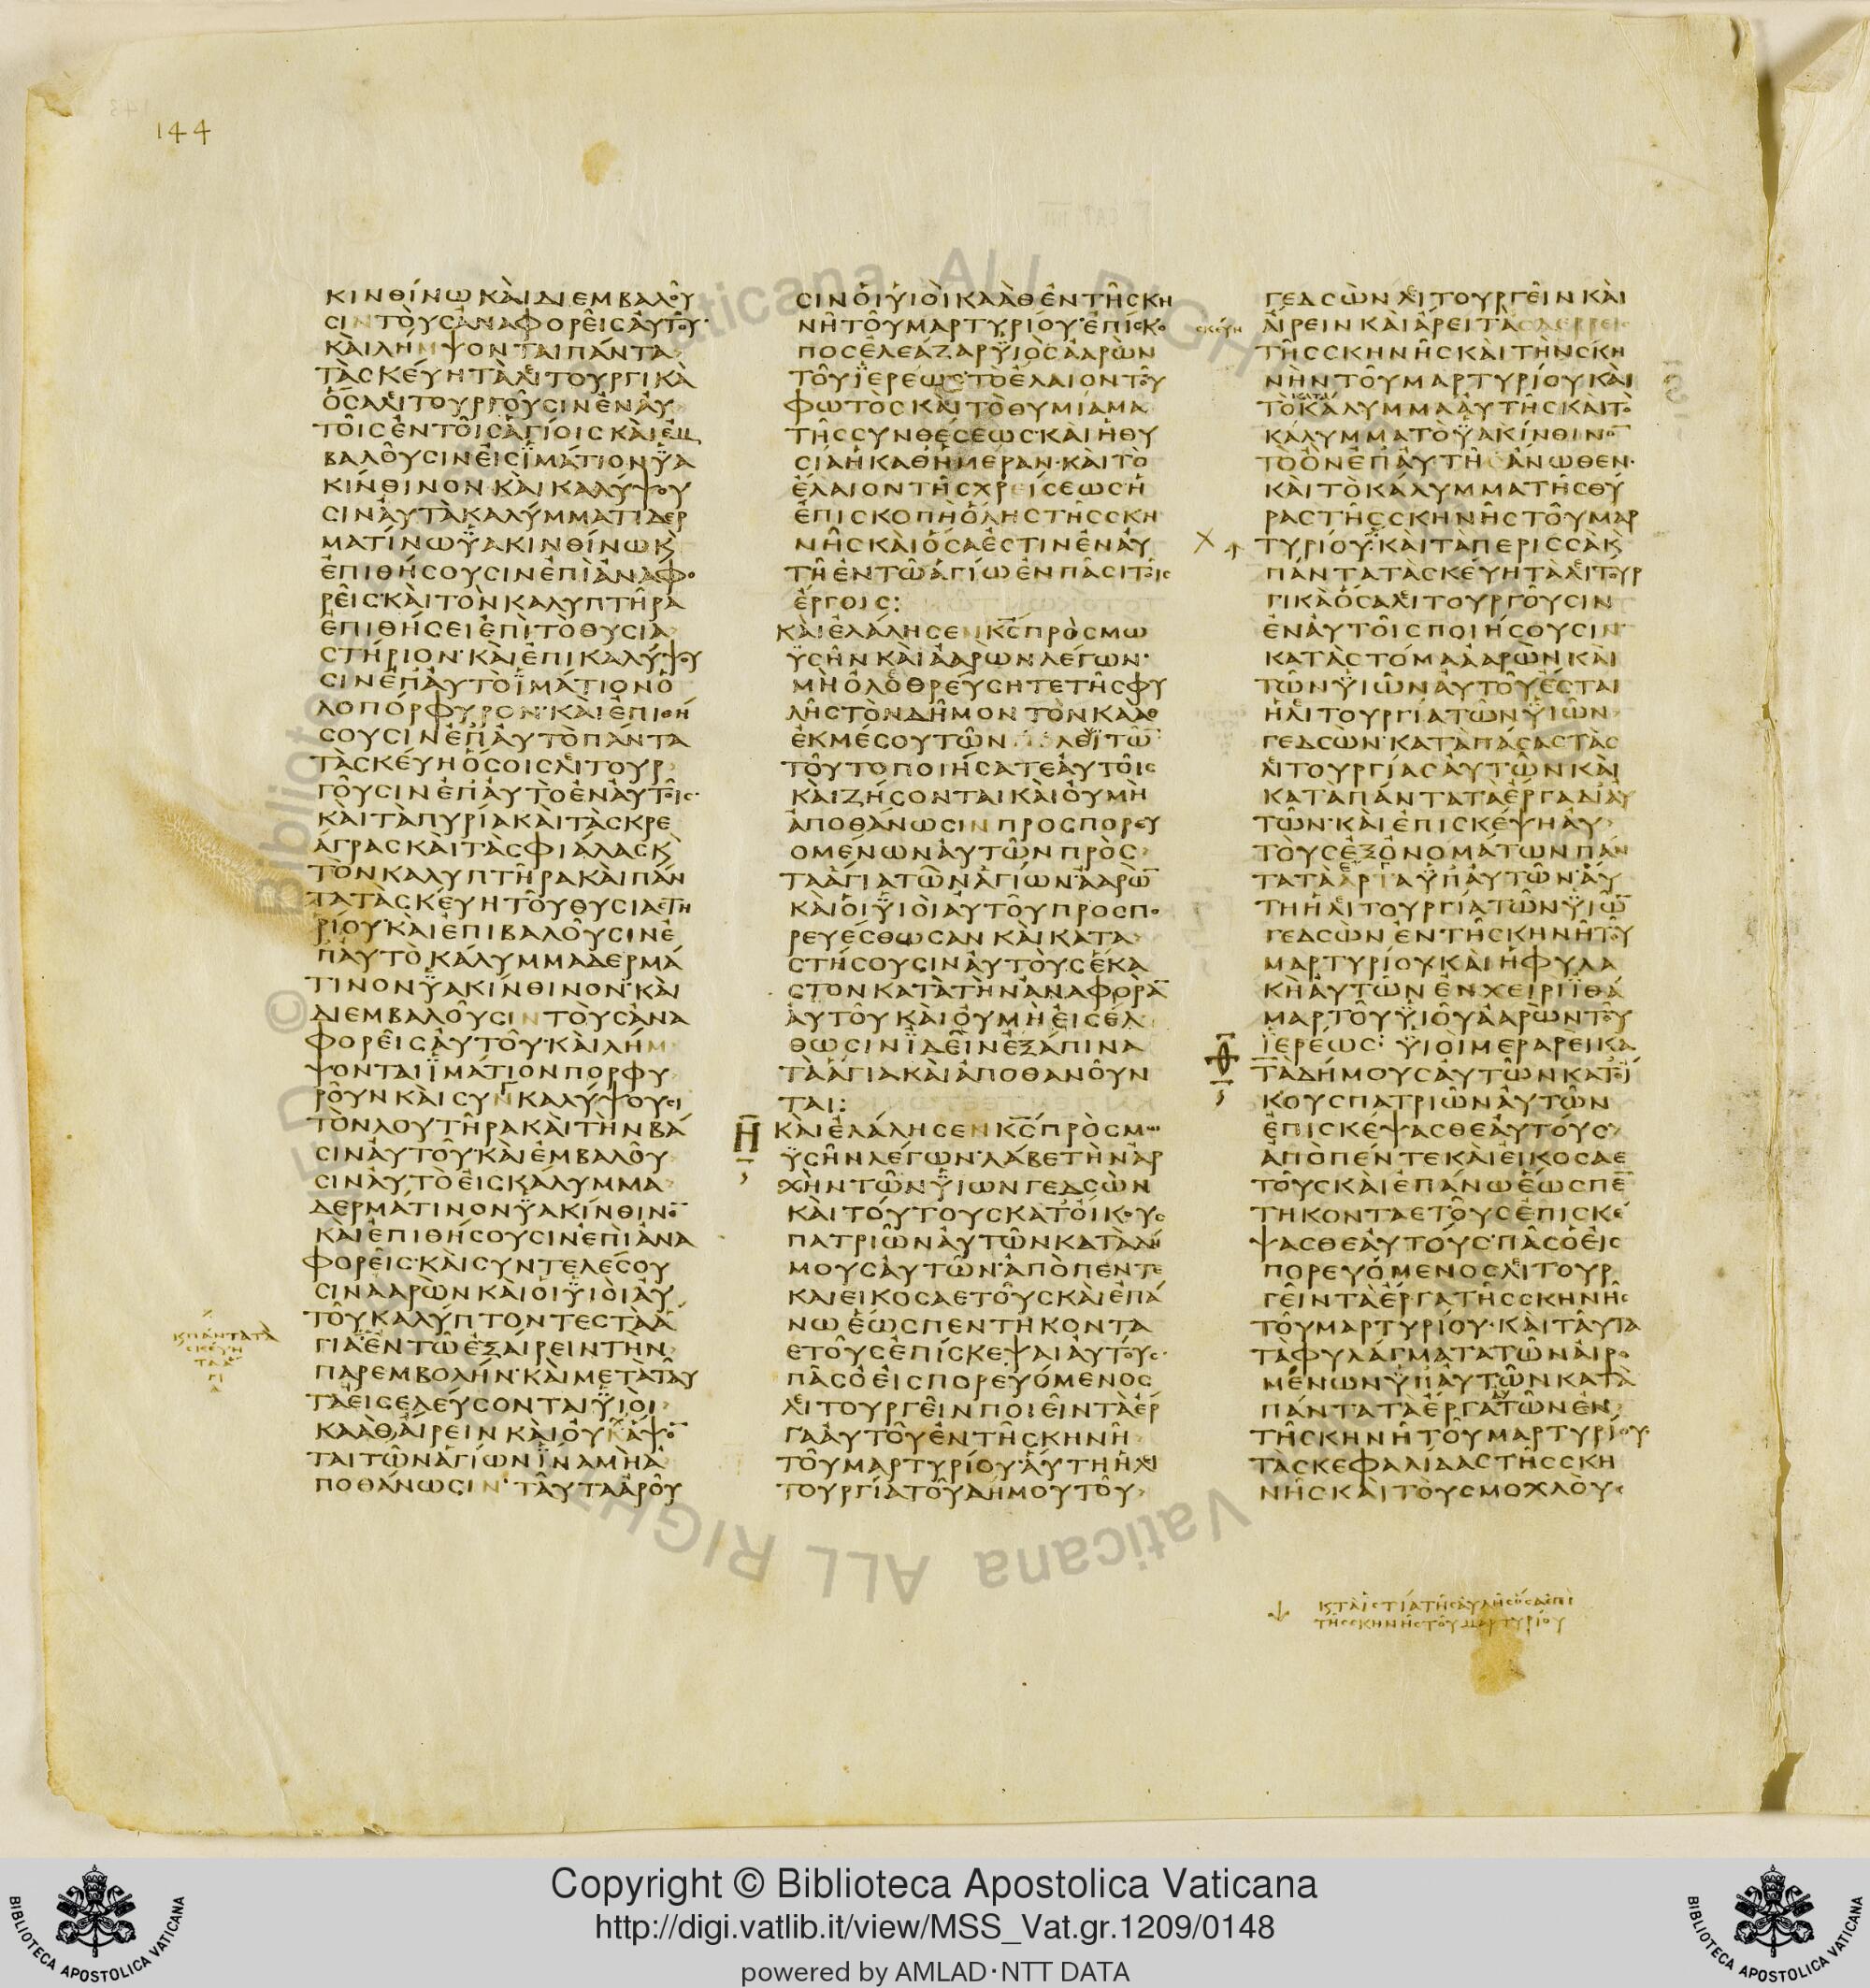 144
ΚΙΝΘΙΝΩΚΑΙΔΙΕΜΒΑΛΟΥ
ΣΙΝΤΟΥΣΑΝΑΦΟΡΕΙΣΑΥΤΟΥ·
ΚΑΙΛΗΜΨΟΝΤΑΙΠΑΝΤΑ
ΤΑΣΚΕΥΗΤΑΛΙΤΟΥΡΓΙΚΑ
ΟΣΑΛΙΤΟΥΡΓΟΥΣΙΝΕΝΑΥ
ΤΟΙΣΕΝΤΟΙΣΑΓΙΟΙΣΚΑΙΕΜ
ΒΑΛΟΥΣΙΝΕΙΣΙΜΑΤΙΟΝΥΑ
ΚΙΝΘΙΝΟΝ·ΚΑΙΚΑΛΥΨΟΥ
ΣΙΝΑΥΤΑΚΑΛΥΜΜΑΤΙΔΕΡ
ΜΑΤΙΝΩΥΑΚΙΝΘΙΝΩΚ
ΕΠΙΘΗΣΟΥΣΙΝΕΠΙΑΝΑΦΟ
ΡΕΙΣ·ΚΑΙΤΟΝΚΑΛΥΠΤΗΡΑ
ΕΠΙΘΗΣΕΙΕΠΙΤΟΘΥΣΙΑ
ΣΤΗΡΙΟΝ·ΚΑΙΕΠΙΚΑΛΥΨΟΥ
ΣΙΝΕΠΑΥΤΟΙΜΑΤΙΟΝΟ
ΛΟΠΟΡΦΥΡΟΝ·ΚΑΙΕΠΙΘΗ
ΣΟΥΣΙΝΕΠΑΥΤΟΠΑΝΤΑ
ΤΑΣΚΕΥΗΟΣΟΙΣΛΙΤΟΥΡ
ΓΟΥΣΙΝΕΠΑΥΤΟΕΝΑΥΤΟΙΣ·
ΚΑΙΤΑΠΥΡΙΑΚΑΙΤΑΣΚΡΕ
ΑΓΡΑΣΚΑΙΤΑΣΦΙΑΛΑΣΚ
ΤΟΝΚΑΛΥΠΤΗΡΑΚΑΙΠΑΝ
ΤΑΤΑΣΚΕΥΗΤΟΥΘΥΣΙΑΣΤΗ
ΡΙΟΥ·ΚΑΙΕΠΙΒΑΛΟΥΣΙΝΕ
ΠΑΥΤΟΚΑΛΥΜΜΑΔΕΡΜΑ
ΤΙΝΟΝΥΑΚΙΝΘΙΝΟΝ·ΚΑΙ
ΔΙΕΜΒΑΛΟΥΣΙΝΤΟΥΣΑΝΑ
ΦΟΡΕΙΣΑΥΤΟΥ·ΚΑΙΛΗΜ
ΨΟΝΤΑΙΙΜΑΤΙΟΝΠΟΡΦΥ
ΡΟΥΝΚΑΙΣΥΝΚΑΛΥΨΟΥΣΙ
ΤΟΝΛΟΥΤΗΡΑΚΑΙΤΗΝΒΑ
ΣΙΝΑΥΤΟΥ·ΚΑΙΕΜΒΑΛΟΥ
ΣΙΝΑΥΤΟΕΙΣΚΑΛΥΜΜΑ
ΔΕΡΜΑΤΙΝΟΝΥΑΚΙΝΘΙΝΟ̅
ΚΑΙΕΠΙΘΗΣΟΥΣΙΝΕΠΙΑΝΑ
ΦΟΡΕΙΣ·ΚΑΙΣΥΝΤΕΛΕΣΟΥ
ΣΙΝΑΑΡΩΝΚΑΙΟΙΥΙΟΙΑΥ
ΤΟΥΚΑΛΥΠΤΟΝΤΕΣΤΑΑ
ΓΙΑΕΝΤΩΕΞΑΙΡΕΙΝΤΗΝ
ΠΑΡΕΜΒΟΛΗΝ·ΚΑΙΜΕΤΑΤΑΥ
ΤΑΕΙΣΕΛΕΥΣΟΝΤΑΙΥΙΟΙ
ΚΑΑΘΑΙΡΕΙΝΚΑΙΟΥΧΑΨΟ̅
ΤΑΙΤΩΝΑΓΙΩΝΙΝΑΜΗΑ
ΠΟΘΑΝΩΣΙΝ·ΤΑΥΤΑΑΡΟΥ
ΚΠΑΝΤΑΤΑ
ΣΚΕΥΗ
ΤΑΑ
ΓΙ
Α
ΣΙΝΟΙΥΙΟΙΚΑΑΘΕΝΤΗΣΚΗ
ΝΗΤΟΥΜΑΡΤΥΡΙΟΥ·ΕΠΙΣΚΟ
ΠΟΣΕΛΕΑΖΑΡΥΙΟΣΑΑΡΩΝ
ΤΟΥΙΕΡΕΩΣ·ΤΟΕΛΑΙΟΝΤΟΥ
ΦΩΤΟΣΚΑΙΤΟΘΥΜΙΑΜΑ
ΤΗΣΣΥΝΘΕΣΕΩΣ·ΚΑΙΗΘΥ
ΣΙΑΗΚΑΘΗΜΕΡΑΝ·ΚΑΙΤΟ
ΕΛΑΙΟΝΤΗΣΧΡΕΙΣΕΩΣΗ
ΕΠΙΣΚΟΠΗΟΛΗΣΤΗΣΣΚΗ
ΝΗΣΚΑΙΟΣΑΕΣΤΙΝΕΝΑΥ
ΤΗΕΝΤΩΑΓΙΩΕΝΠΑΣΙΤΟΙΣ
ΕΡΓΟΙΣ:
ΚΑΙΕΛΑΛΗΣΕΝΚ̅Σ̅ΠΡΟΣΜΩ
ΥΣΗΝΚΑΙΑΑΡΩΝΛΕΓΩΝ·
ΜΗΟΛΟΘΡΕΥΣΗΤΕΤΗΣΦΥ
ΛΗΣΤΟΝΔΗΜΟΝΤΟΝΚΑΑΘ
ΕΚΜΕΣΟΥΤΩΝΛΕΥΙΤΩ̅
ΤΟΥΤΟΠΟΙΗΣΑΤΕΑΥΤΟΙΣ
ΚΑΙΖΗΣΟΝΤΑΙΚΑΙΟΥΜΗ
ΑΠΟΘΑΝΩΣΙΝΠΡΟΣΠΟΡΕΥ
ΟΜΕΝΩΝΑΥΤΩΝΠΡΟΣ
ΤΑΑΓΙΑΤΩΝΑΓΙΩΝ·ΑΑΡΩ̅
ΚΑΙΟΙΥΙΟΙΑΥΤΟΥΠΡΟΣΠΟ
ΡΕΥΕΣΘΩΣΑΝΚΑΙΚΑΤΑ
ΣΤΗΣΟΥΣΙΝΑΥΤΟΥΣΕΚΑ
ΣΤΟΝΚΑΤΑΤΗΝΑΝΑΦΟΡΑ̅
ΑΥΤΟΥΚΑΙΟΥΜΗΕΙΣΕΛ
ΘΩΣΙΝΙΔΕΙΝΕΞΑΠΙΝΑ
ΤΑΑΓΙΑΚΑΙΑΠΟΘΑΝΟΥΝ
ΤΑΙ:
Η̅ ΚΑΙΕΛΑΛΗΣΕΝΚ̅Σ̅ΠΡΟΣΜΩ
ΥΣΗΝΛΕΓΩΝ·ΛΑΒΕΤΗΝΑΡ
ΧΗΝΤΩΝΥΙΩΝΓΕΔΣΩΝ
ΚΑΙΤΟΥΤΟΥΣΚΑΤΟΙΚΟΥΣ
ΠΑΤΡΙΩΝΑΥΤΩΝΚΑΤΑΔΗ
ΜΟΥΣΑΥΤΩΝ·ΑΠΟΠΕΝΤΕ
ΚΑΙΕΙΚΟΣΑΕΤΟΥΣΚΑΙΕΠΑ
ΝΩΕΩΣΠΕΝΤΗΚΟΝΤΑ
ΕΤΟΥΣΕΠΙΣΚΕΨΑΙΑΥΤΟΥΣ·
ΠΑΣΟΕΙΣΠΟΡΕΥΟΜΕΝΟΣ
ΛΙΤΟΥΡΓΕΙΝΠΟΙΕΙΝΤΑΕΡ
ΓΑΑΥΤΟΥΕΝΤΗΣΚΗΝΗ
ΤΟΥΜΑΡΤΥΡΙΟΥ·ΑΥΤΗΗΛΙ
ΤΟΥΡΓΙΑΤΟΥΔΗΜΟΥΤΟΥ
ΓΕΔΣΩΝΛΙΤΟΥΡΓΕΙΝΚΑΙ
ΣΚΕΥΗ
ΑΙΡΕΙΝΚΑΙΑΡΕΙΤΑΣΔΕΡΡΕΙΣ
ΤΗΣΣΚΗΝΗΣΚΑΙΤΗΝΣΚΗ
ΝΗΝΤΟΥΜΑΡΤΥΡΙΟΥΚΑΙ
ΤΟΚΑΛΥΜΜΑΑΥΤΗΣΚΑΙΤΟ
ΚΑΛΥΜΜΑΤΟΥΑΚΙΝΘΙΝΟ̅
ΤΟΟΝΕΠΑΥΤΗΣΑΝΩΘΕΝ·
ΚΑΙΤΟΚΑΛΥΜΜΑΤΗΣΘΥ
ΡΑΣΤΗΣΣΚΗΝΗΣΤΟΥΜΑΡ
ΤΥΡΙΟΥ·ΚΑΙΤΑΠΕΡΙΣΣΑΚ
ΠΑΝΤΑΤΑΣΚΕΥΗΤΑΛΙΤΟΥΡ
ΓΙΚΑΟΣΑΛΙΤΟΥΡΓΟΥΣΙΝ
ΕΝΑΥΤΟΙΣΠΟΙΗΣΟΥΣΙΝ
ΚΑΤΑΣΤΟΜΑΑΑΡΩΝΚΑΙ
ΤΩΝΥΙΩΝΑΥΤΟΥΕΣΤΑΙ
ΗΛΙΤΟΥΡΓΙΑΤΩΝΥΙΩΝ
ΓΕΔΣΩΝ·ΚΑΤΑΠΑΣΑΣΤΑΣ
ΛΙΤΟΥΡΓΙΑΣΑΥΤΩΝΚΑΙ
ΚΑΤΑΠΑΝΤΑΤΑΕΡΓΑΔΙΑΥ
ΤΩΝ·ΚΑΙΕΠΙΣΚΕΨΗΑΥ
ΤΟΥΣΕΞΟΝΟΜΑΤΩΝΠΑΝ
ΤΑΤΑΑΡΤΑΥΠΑΥΤΩΝ·ΑΥ
ΤΗΗΛΙΤΟΥΡΓΙΑΤΩΝΥΙΩ̅
ΓΕΔΣΩΝΕΝΤΗΣΚΗΝΗΤΟΥ
ΜΑΡΤΥΡΙΟΥΚΑΙΗΦΥΛΑ
ΚΗΑΥΤΩΝΕΝΧΕΙΡΙΙΘΑ
ΜΑΡΤΟΥΥΙΟΥΑΑΡΩΝΤΟΥ
ΙΕΡΕΩΣ: ΥΙΟΙΜΕΡΑΡΕΙΚΑ
Θ̅ ΤΑΔΗΜΟΥΣΑΥΤΩΝΚΑΤΟΙ
ΚΟΥΣΠΑΤΡΙΩΝΑΥΤΩΝ
ΕΠΙΣΚΕΨΑΣΘΕΑΥΤΟΥΣ
ΑΠΟΠΕΝΤΕΚΑΙΕΙΚΟΣΑΕ
ΤΟΥΣΚΑΙΕΠΑΝΩΕΩΣΠΕ̅
ΤΗΚΟΝΤΑΕΤΟΥΣΕΠΙΣΚΕ
ΨΑΣΘΕΑΥΤΟΥΣ·ΠΑΣΟΕΙΣ
ΠΟΡΕΥΟΜΕΝΟΣΛΙΤΟΥΡ
ΓΕΙΝΤΑΕΡΓΑΤΗΣΣΚΗΝΗΣ
ΤΟΥΜΑΡΤΥΡΙΟΥ·ΚΑΙΤΑΥΤΑ
ΤΑΦΥΛΑΓΜΑΤΑΤΩΝΑΙΡΟ
ΜΕΝΩΝΥΠΑΥΤΩΝΚΑΤΑ
ΠΑΝΤΑΤΑΕΡΓΑΤΩΝΕΝ
ΤΗΣΚΗΝΗΤΟΥΜΑΡΤΥΡΙΟΥ·
ΤΑΣΚΕΦΑΛΙΔΑΣΤΗΣΣΚΗ
ΝΗΣΚΑΙΤΟΥΣΜΟΧΛΟΥΣ
ΚΤΑΙΣΤΙΑΤΗΣΑΥΛΗΣΟΣΑΕΠΙ
ΤΗΣΣΚΗΝΗΣΤΟΥΜΑΡΤΥΡΙΟΥ
© Biblioteca Apostolica Vaticana ALL RIGHTS RESERVED
Copyright © Biblioteca Apostolica Vaticana
http://digi.vatlib.it/view/MSS_Vat.gr.1209/0148
powered by AMLAD·NTT DATA
BIBLIOTECA APOSTOLICA VATICANA
BIBLIOTECA APOSTOLICA VATICANA